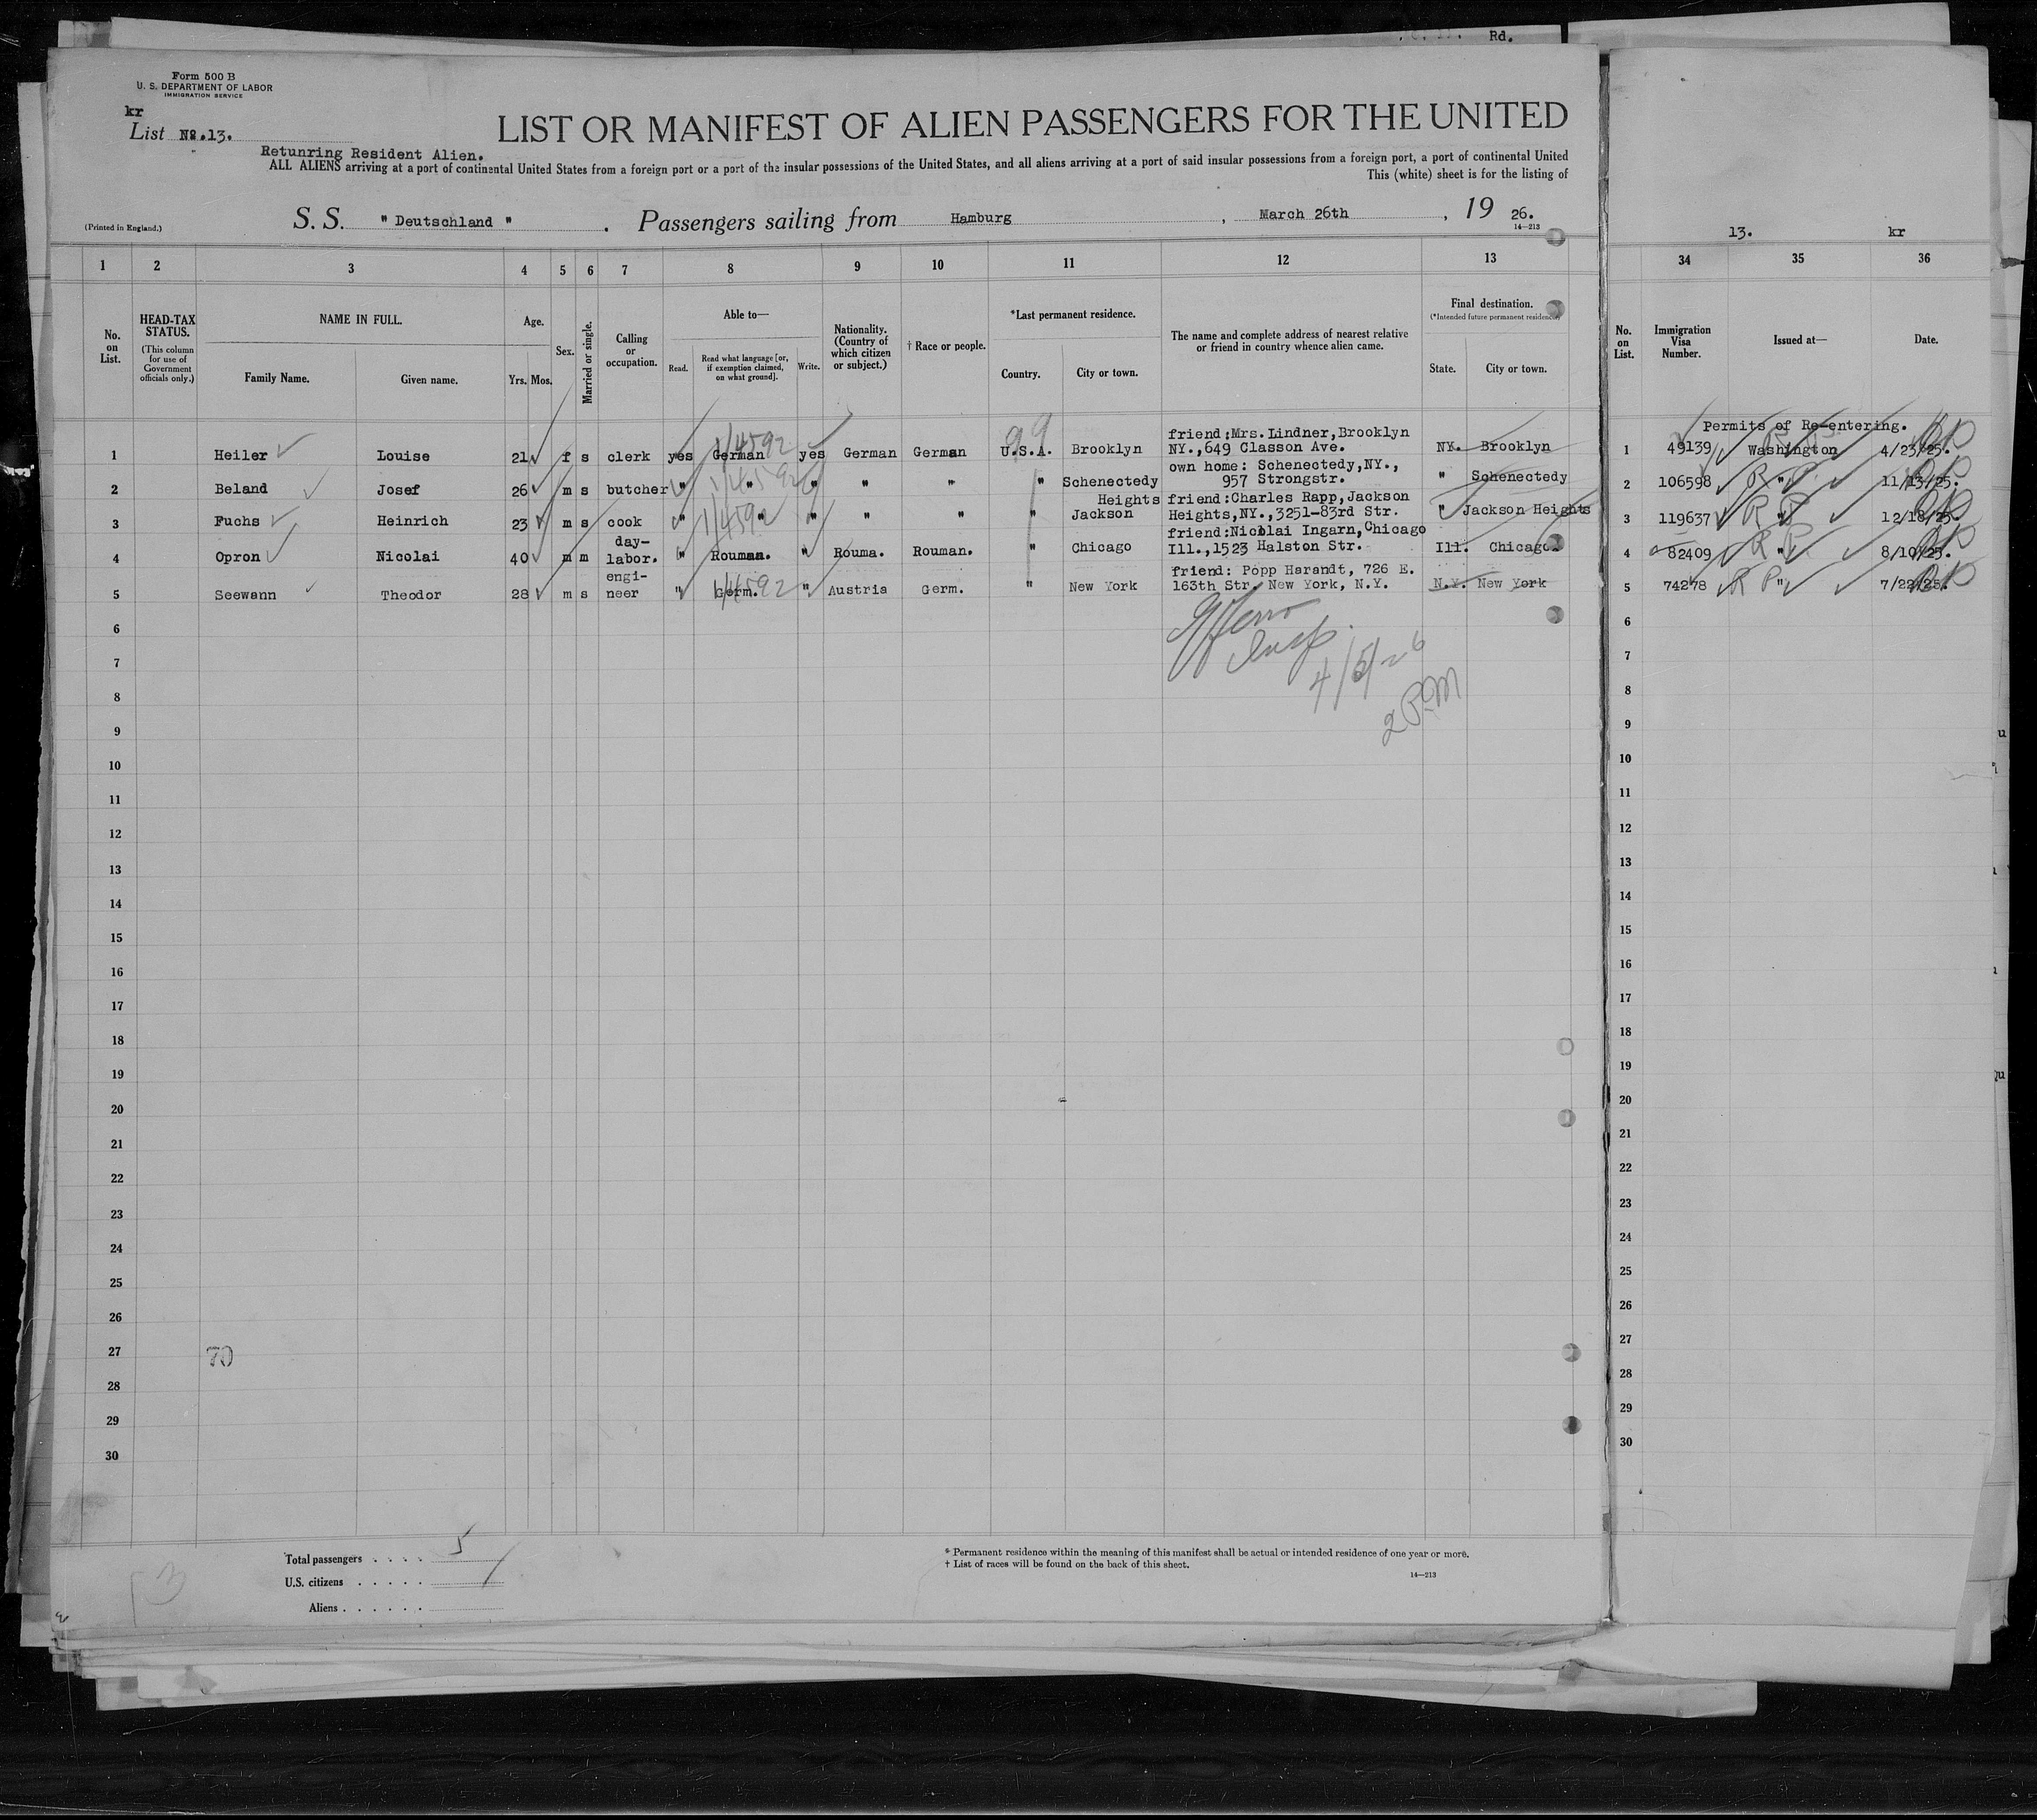 Rd.
Form 500 B
U. S. DEPARTMENT OF LABOR
IMMIGRATION SERVICE
kr
List No.13.
LIST OR MANIFEST OF ALIEN PASSENGERS FOR THE UNITED
Retunring Resident Alien.
ALL ALIENS arriving at a port of continental United States from a foreign port or a port of the insular possessions of the United States, and all aliens arriving at a port of said insular possessions from a foreign port, a port of continental United
This (white) sheet is for the listing of
(Printed in England.)
S. S. " Deutschland " . Passengers sailing from Hamburg , March 26th , 19 26.
14—213
13. kr
1 2 3 4 5 6 7 8 9 10 11 12 13 34 35 36
No. on List.
HEAD-TAX STATUS.
(This column for use of Government officials only.)
NAME IN FULL.
Family Name. Given name.
Age.
Yrs. Mos.
Sex.
Married or single.
Calling or occupation.
Able to—
Read. Read what language [or, if exemption claimed, on what ground]. Write.
Nationality. (Country of which citizen or subject.)
† Race or people.
*Last permanent residence.
Country. City or town.
The name and complete address of nearest relative or friend in country whence alien came.
Final destination.
(*Intended future permanent residence.)
State. City or town.
No. on List.
Immigration Visa Number.
Issued at—
Date.
Permits of Re-entering.
99
1/4592
1 Heiler Louise 21 f s clerk yes German yes German German U.S.A. Brooklyn friend:Mrs.Lindner,Brooklyn NY.,649 Classon Ave. NY. Brooklyn 1 49139 Washington 4/23/25.
R P
1/4592
2 Beland Josef 26 m s butcher " " " " " " Schenectedy own home: Schenectedy,NY., 957 Strongstr. " Schenectedy 2 106598 " 11/13/25.
R P
1/4592
3 Fuchs Heinrich 23 m s cook " " " " " " Heights Jackson friend:Charles Rapp,Jackson Heights,NY.,3251-83rd Str. " Jackson Heights 3 119637 " 12/18/25.
R P
4 Opron Nicolai 40 m m day-labor. " Rouman. " Rouma. Rouman. " Chicago friend:Nicolai Ingarn,Chicago Ill.,1523 Halston Str. Ill. Chicago 4 82409 " 8/10/25.
R P
1/4592
5 Seewann Theodor 28 m s engi-neer " Germ. " Austria Germ. " New York friend: Popp Harandt, 726 E. 163th Str. New York, N.Y. N.Y. New York 5 74278 " 7/22/25.
R P
Insp.
4/5/26
2 PM
6 6
7 7
8 8
9 9
10 10
11 11
12 12
13 13
14 14
15 15
16 16
17 17
18 18
19 19
20 20
21 21
22 22
23 23
24 24
25 25
26 26
27 70 27
28 28
29 29
30 30
Total passengers . . . . 5
U.S. citizens . . . . .
Aliens . . . . . .
13
* Permanent residence within the meaning of this manifest shall be actual or intended residence of one year or more.
† List of races will be found on the back of this sheet.
14—213